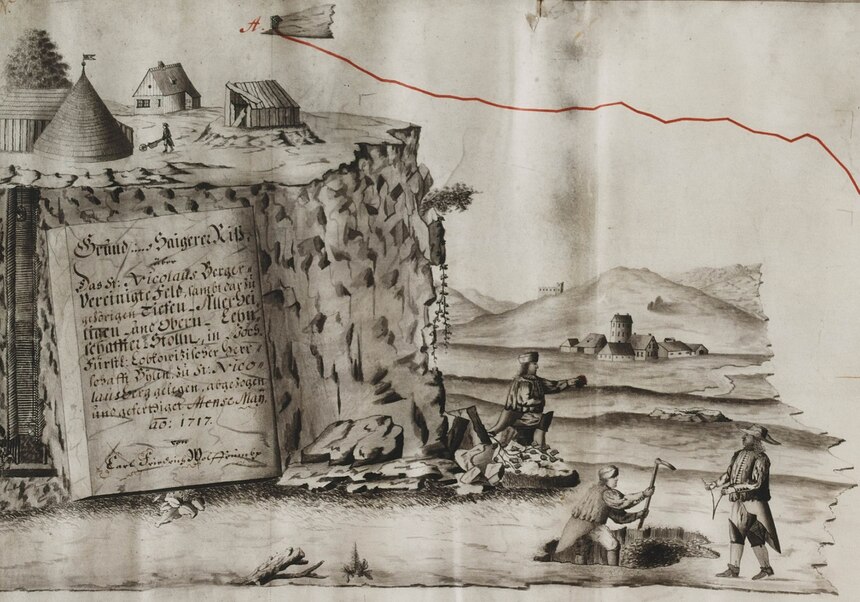 A.
Grund und Saigerer Riß,
über
Das St: Nicolaus Berger
vereinigte Feld, sambt dar zu
gehörigen Tiefen- Aller Hei
ligen- und Obern- Lehn
schaffter Stolln, in Hoch
Fürstl: Lobkowizischer Herr
schafft Bylin, zu St: Nico
lausberg gelegen, abgezogen
und gefertiget Mense May,
ao: 1717.
von
Carl Friedrich